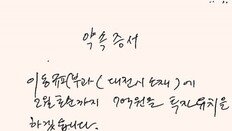 약속 증서
이동규피부과 (대전시 소재) 에
2월 초순까지 7억원을 투자유치를
하겠습니다.